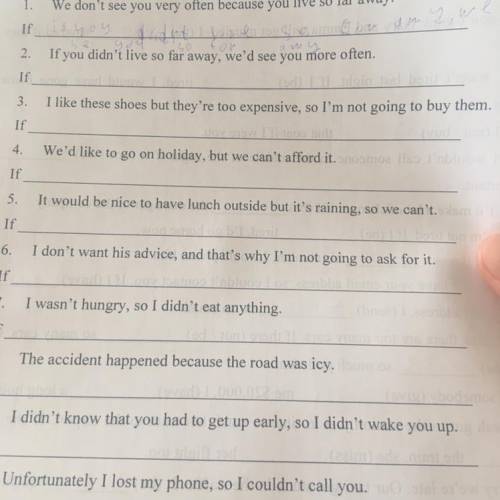 1. We don't see you very often because you live so far away.
If
2. If you didn't live so far away, we'd see you more often.
If
3. I like these shoes but they're too expensive, so I'm not going to buy them.
If
4. We'd like to go on holiday, but we can't afford it.
If
5. It would be nice to have lunch outside but it's raining, so we can't.
If
6. I don't want his advice, and that's why I'm not going to ask for it.
If
I wasn't hungry, so I didn't eat anything.
The accident happened because the road was icy.
I didn't know that you had to get up early, so I didn't wake you up.
Unfortunately I lost my phone, so I couldn't call you.